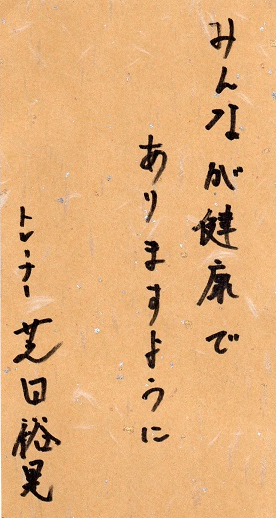 みんなが健康で
ありますように
トレーナー 芝田裕晃